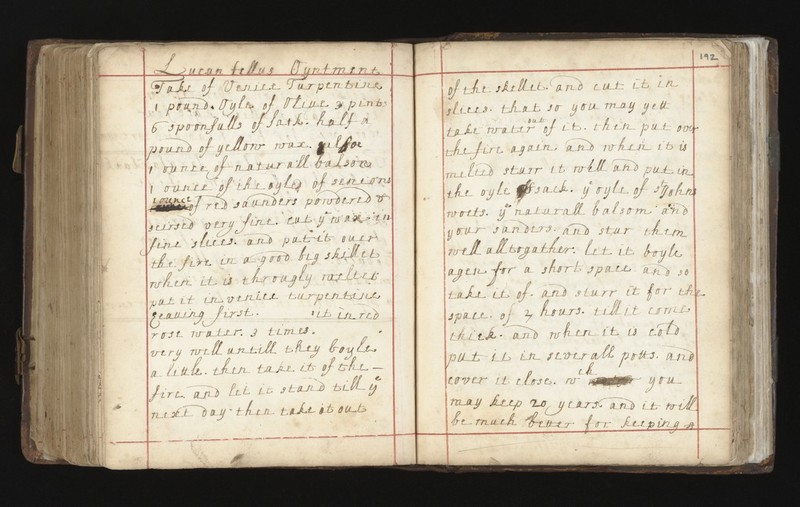 Lucan tellus Oyntment
Take of Venice Turpentine
1 pound. Oyle of Olive 3 pints
6 spoonfulls of sack. half a
pound of yellow wax.
1 ounce of naturall balsom
1 ounce of the oyle of
1 ounce of red saunders powdered &
seirsed very fine. cut yͤ wax in
fine slices. and put it over
the fire in a good big skillet
when it is throughly melted
put it in venice turpentine
first. it in red
rose water. 3 times.
very well untill they boyle
a litle. then take it of the
fire and let it stand till yͤ
next day then take it out
192
of the skellet and cut it in
slices. that so you may gett
take water out of it. then put over
the fire again and when it is
melted sturr it well and put in
the oyle sack. yͤ oyle of Sᵗ Johns
worts. yͤ naturall balsom and
your sanders. and stur them
well alltogather. let it boyle
agen for a short space and so
take it of. and sturr it for the
space. of 2 hours. till it come
thick. and when it is cold
put it in severall potts. and
cover it close. wᶜʰ you
may keep 20 years. and it will
be much better for keeping